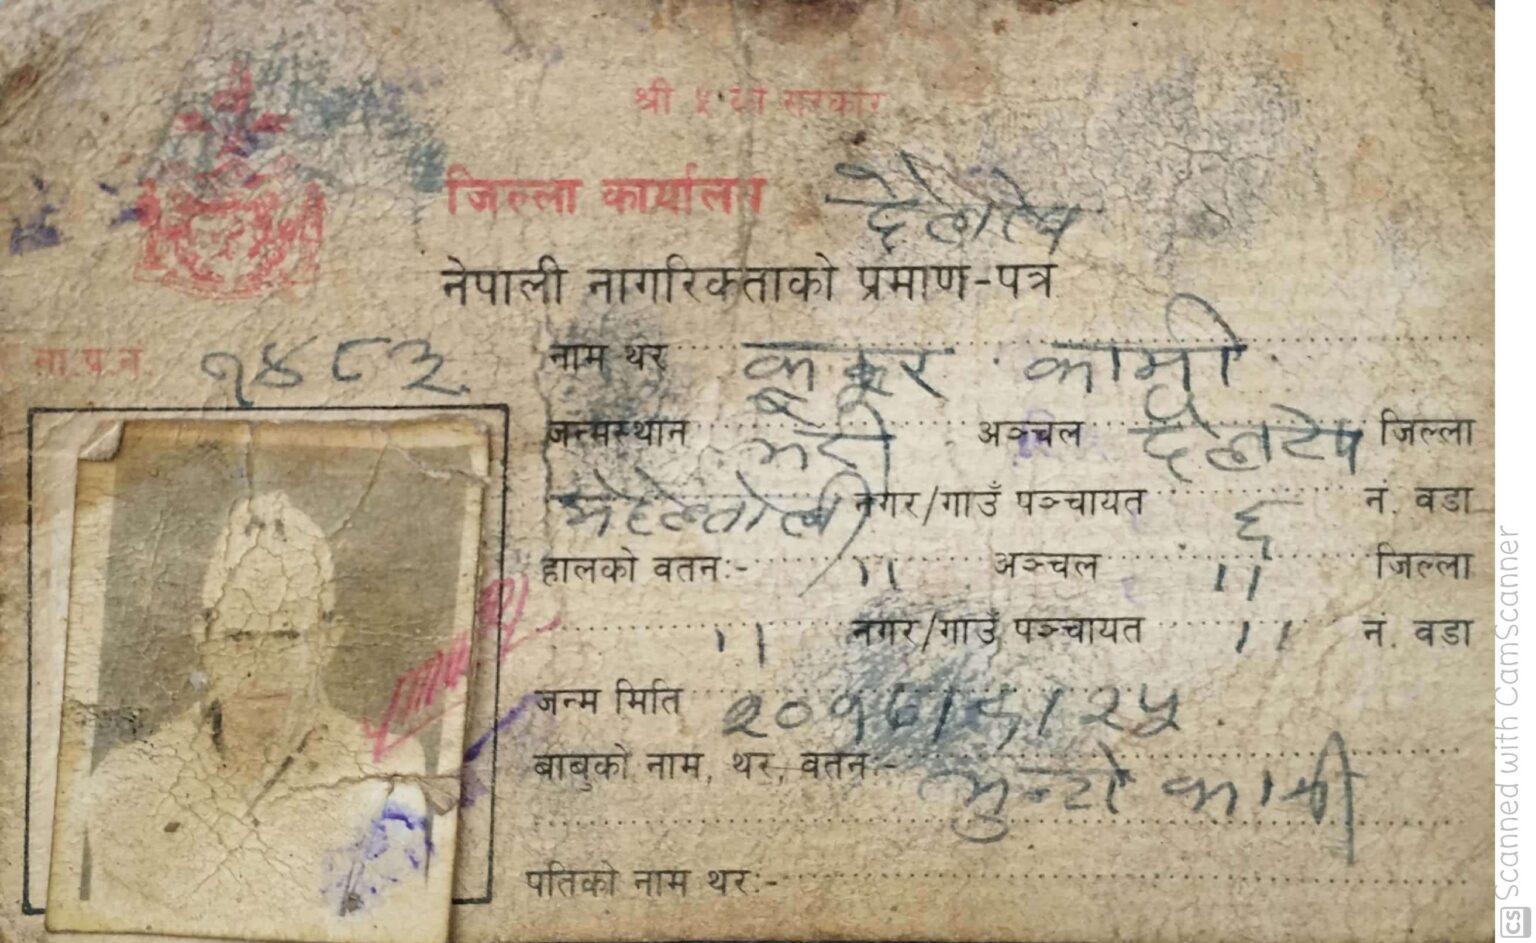 श्री ५ को सरकार
जिल्ला कार्यालय दैलेख
नेपाली नागरिकताको प्रमाण-पत्र
ना.प.न. नाम थर कामी
जन्मस्थान भेरी अञ्चल दैलेख जिल्ला
नगर/गाउँ पञ्चायत ६ नं. वडा
हालको वतन:- ,, अञ्चल ,, जिल्ला
,, नगर/गाउँ पञ्चायत ,, नं. वडा
जन्म मिति
बाबुको नाम, थर, वतन:- कामी
पतिको नाम थर:-
CS Scanned with CamScanner